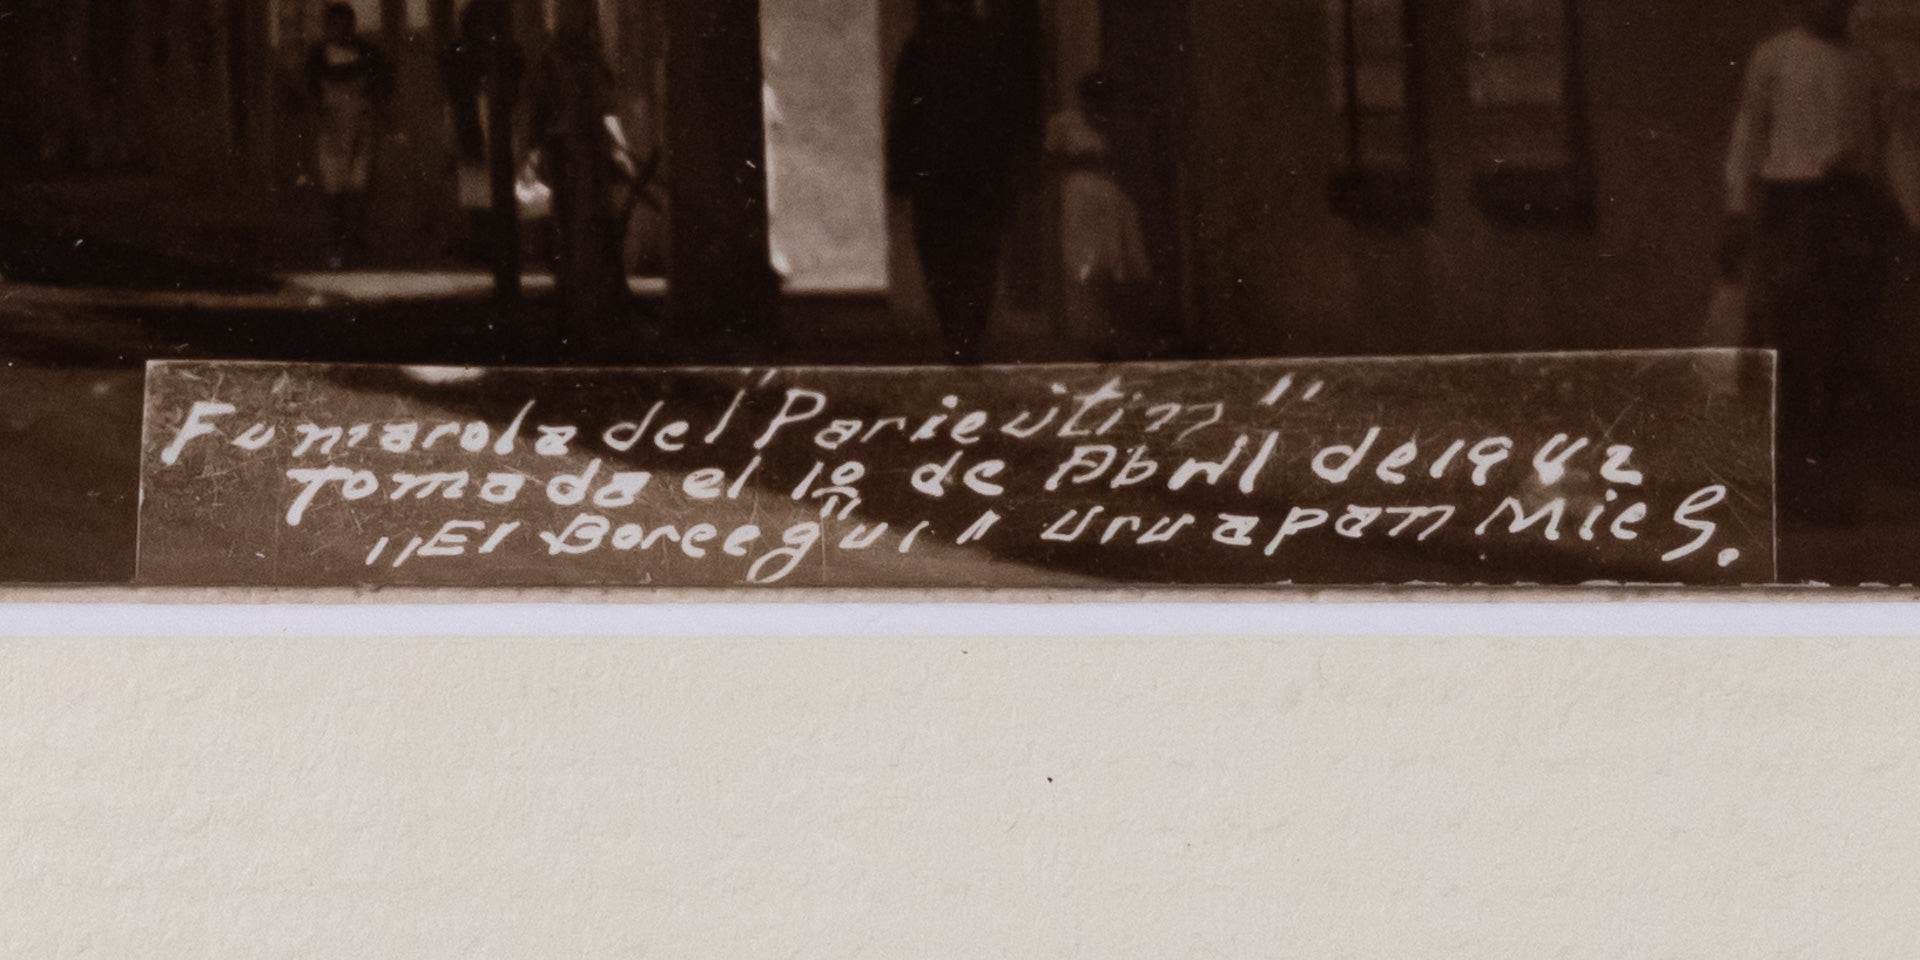 Fumarola del "Paricutin"
Tomada el 1º de Abril de 1942
"El Borcegui" Uruapan Mich.